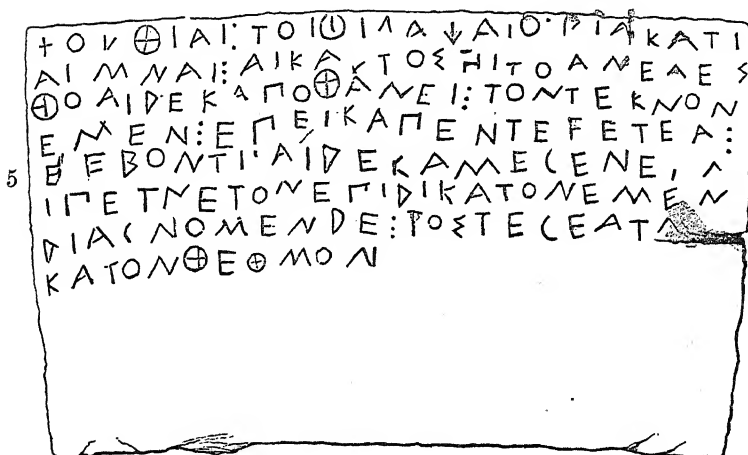 +ΟΥΘΙΑΙ⋮ΤΟΙΦΙΛΑΨΑΙΟ⋮ΔΙΑΚΑΤΙ
ΑΙΜΝΑΙ⋮ΑΙΚΑΥΤΟΣΗΙΤΟΑΝΕΛΕΣ
ΘΟΑΙΔΕΚΑΠΟΘΑΝΕΙ⋮ΤΟΝΤΕΚΝΟΝ
ΕΜΕΝ⋮ΕΠΕΙΚΑΠΕΝΤΕϜΕΤΕΑ⋮
5 ΗΕΒΟΝΤΙ⋮ΑΙΔΕΚΑΜΕΓΕΝΕ
ΙΠΕΤΝΕΤΟΝΕΠΙΔΙΚΑΤΟΝΕΜΕΝ
ΔΙΑΓΝΟΜΕΝΔΕ⋮ΤΟΣΤΕΓΕΑΤΑ
ΚΑΤΟΝΘΕΘΜΟΝ